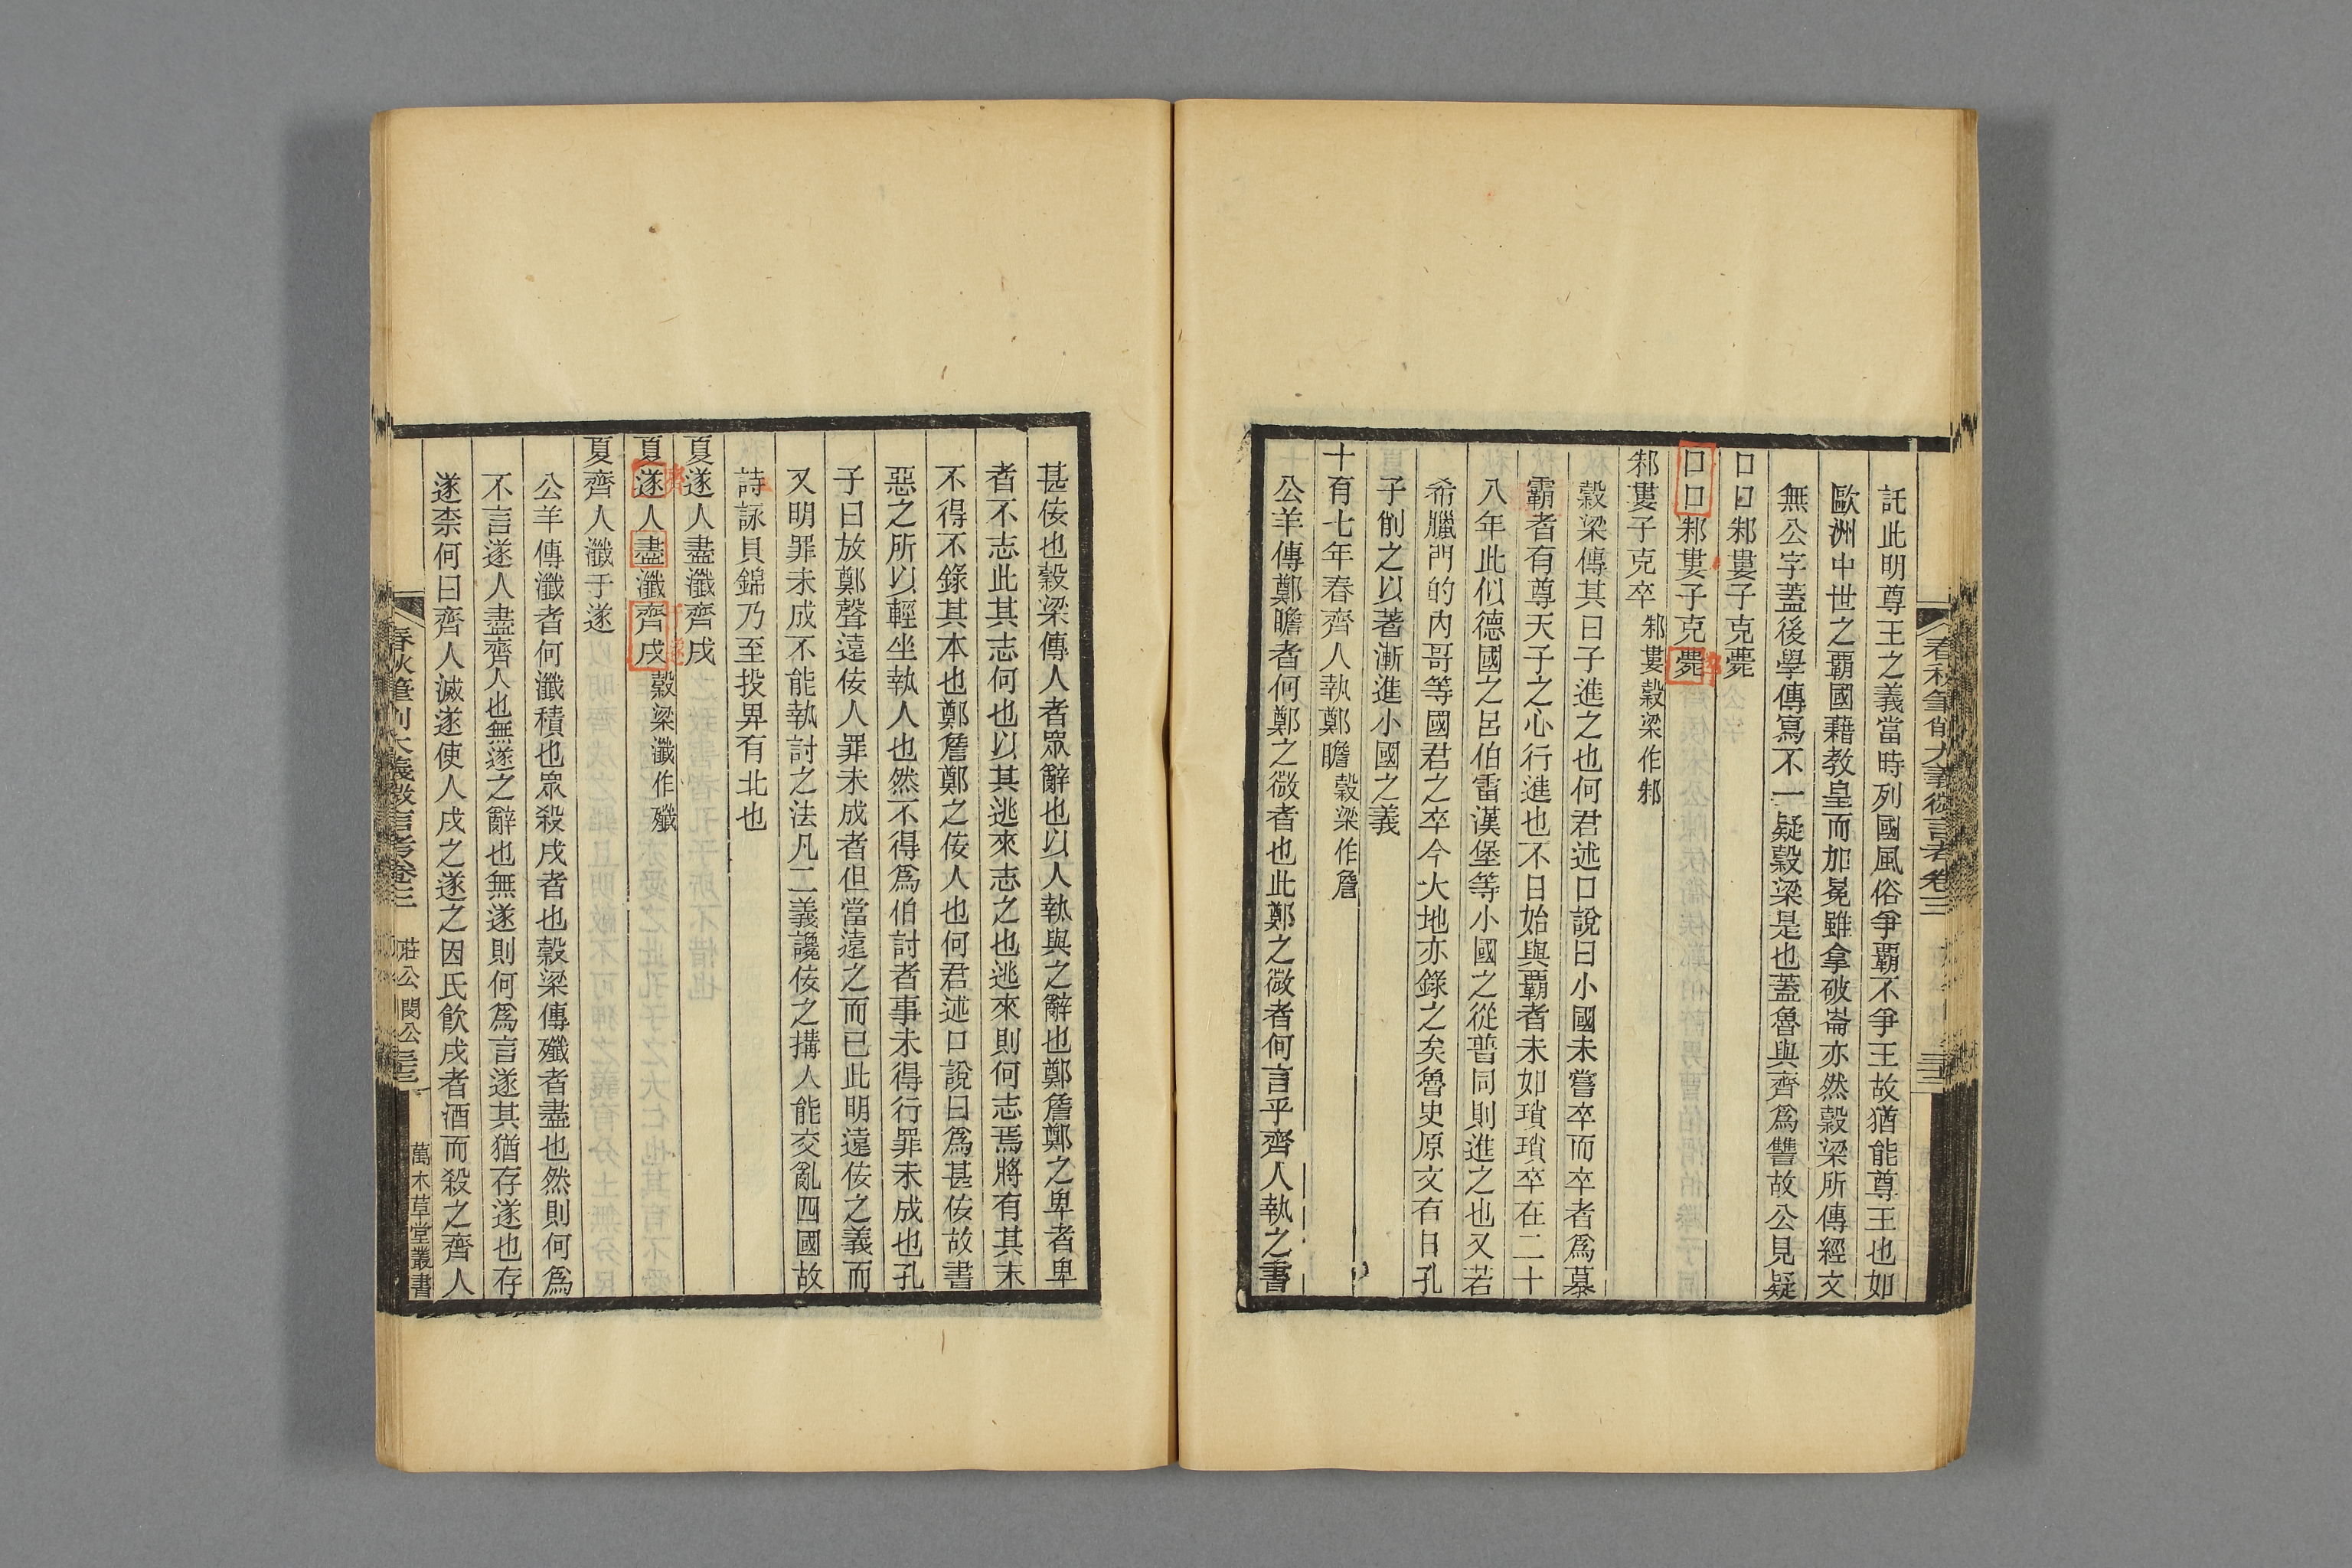 春秋筆削大義微言考卷三
託此明尊王之義當時列國風俗爭霸不爭王故猶能尊王也如
歐洲中世之霸國藉教皇而加冕雖拿破崙亦然穀梁所傳經文
無公字蓋後學傳寫不一疑穀梁是也蓋魯與齊爲讐故公見疑
口口邾婁子克薨
口口邾婁子克薨
邾婁子克卒 邾婁穀梁作邾
穀梁傳其曰子進之也何君述口說曰小國未嘗卒而卒者爲慕
霸者有尊天子之心行進也不日始與霸者未如瑣瑣卒在二十
八年此似德國之呂伯雷漢堡等小國之從普同則進之也又若
希臘門的內哥等國君之卒今大地亦錄之矣魯史原文有日孔
子削之以著漸進小國之義
十有七年春齊人執鄭瞻 穀梁作詹
公羊傳鄭瞻者何鄭之微者也此鄭之微者何言乎齊人執之書
甚佞也穀梁傳人者眾辭也以人執與之辭也鄭詹鄭之卑者卑
者不志此其志何也以其逃來志之也逃來則何志焉將有其末
不得不錄其本也鄭詹鄭之佞人也何君述口說曰爲甚佞故書
惡之所以輕坐執人也然不得爲伯討者事未得行罪未成也孔
子曰放鄭聲遠佞人罪未成者但當遠之而已此明遠佞之義而
又明罪未成不能執討之法凡二義讒佞之搆人能交亂四國故
詩詠貝錦乃至投畀有北也
夏遂人盡瀸齊戍
齊 于遂
夏遂人盡瀸齊戍 穀梁瀸作殲
夏齊人瀸于遂
公羊傳瀸者何瀸積也眾殺戍者也穀梁傳殲者盡也然則何爲
不言遂人盡齊人也無遂之辭也無遂則何爲言遂其猶存遂也存
遂柰何曰齊人滅遂使人戍之遂之因氏飲戍者酒而殺之齊人
春秋筆削大義微言考卷三 莊公閔公 三三 萬木草堂叢書